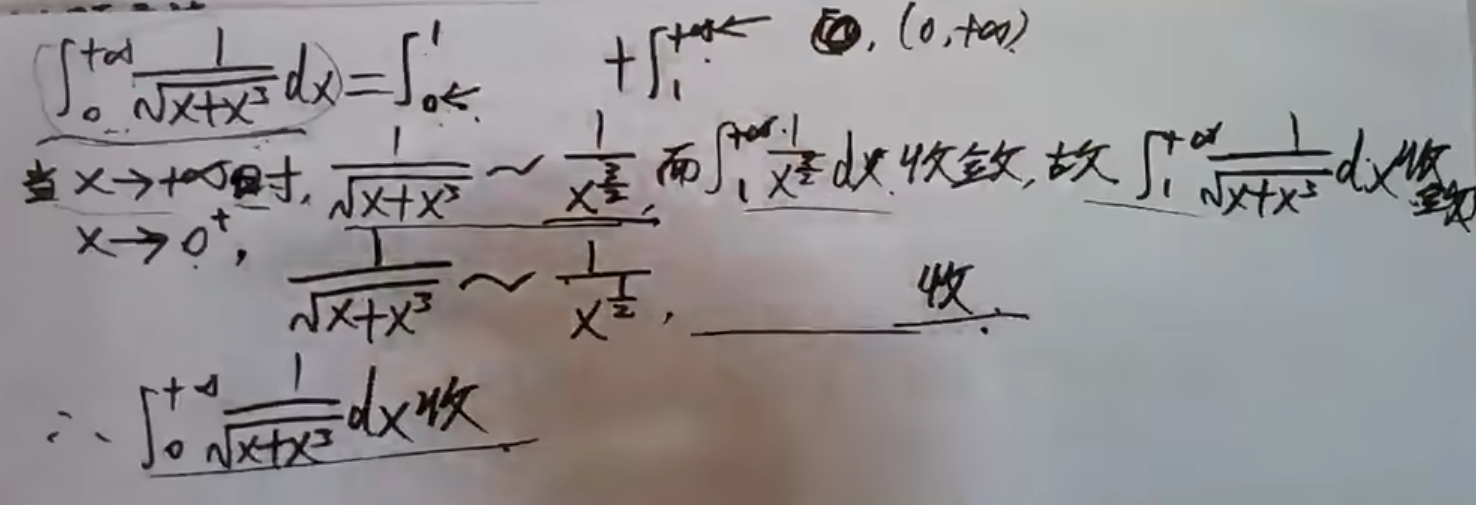 ∫₀^{+∞} 1/√(x+x³) dx = ∫₀¹ + ∫₁^{+∞} , (0,+∞)
当 x→+∞时, 1/√(x+x³) ~ 1/x^{3/2}, 而 ∫₁^{+∞} 1/x^{3/2} dx 收敛, 故 ∫₁^{+∞} 1/√(x+x³) dx 收敛
x→0⁺, 1/√(x+x³) ~ 1/x^{1/2}, 收.
∴ ∫₀^{+∞} 1/√(x+x³) dx 收